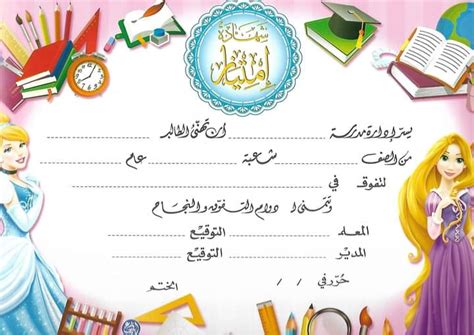 شهادة
إمتياز
يسر إدارة مدرسة أن تهنئ الطالب
من الصف شعبة عام
لتفوق في
ونتمنى دوام التفوق والنجاح
المعلم التوقيع
المدير التوقيع
حُرّر في / / الختم